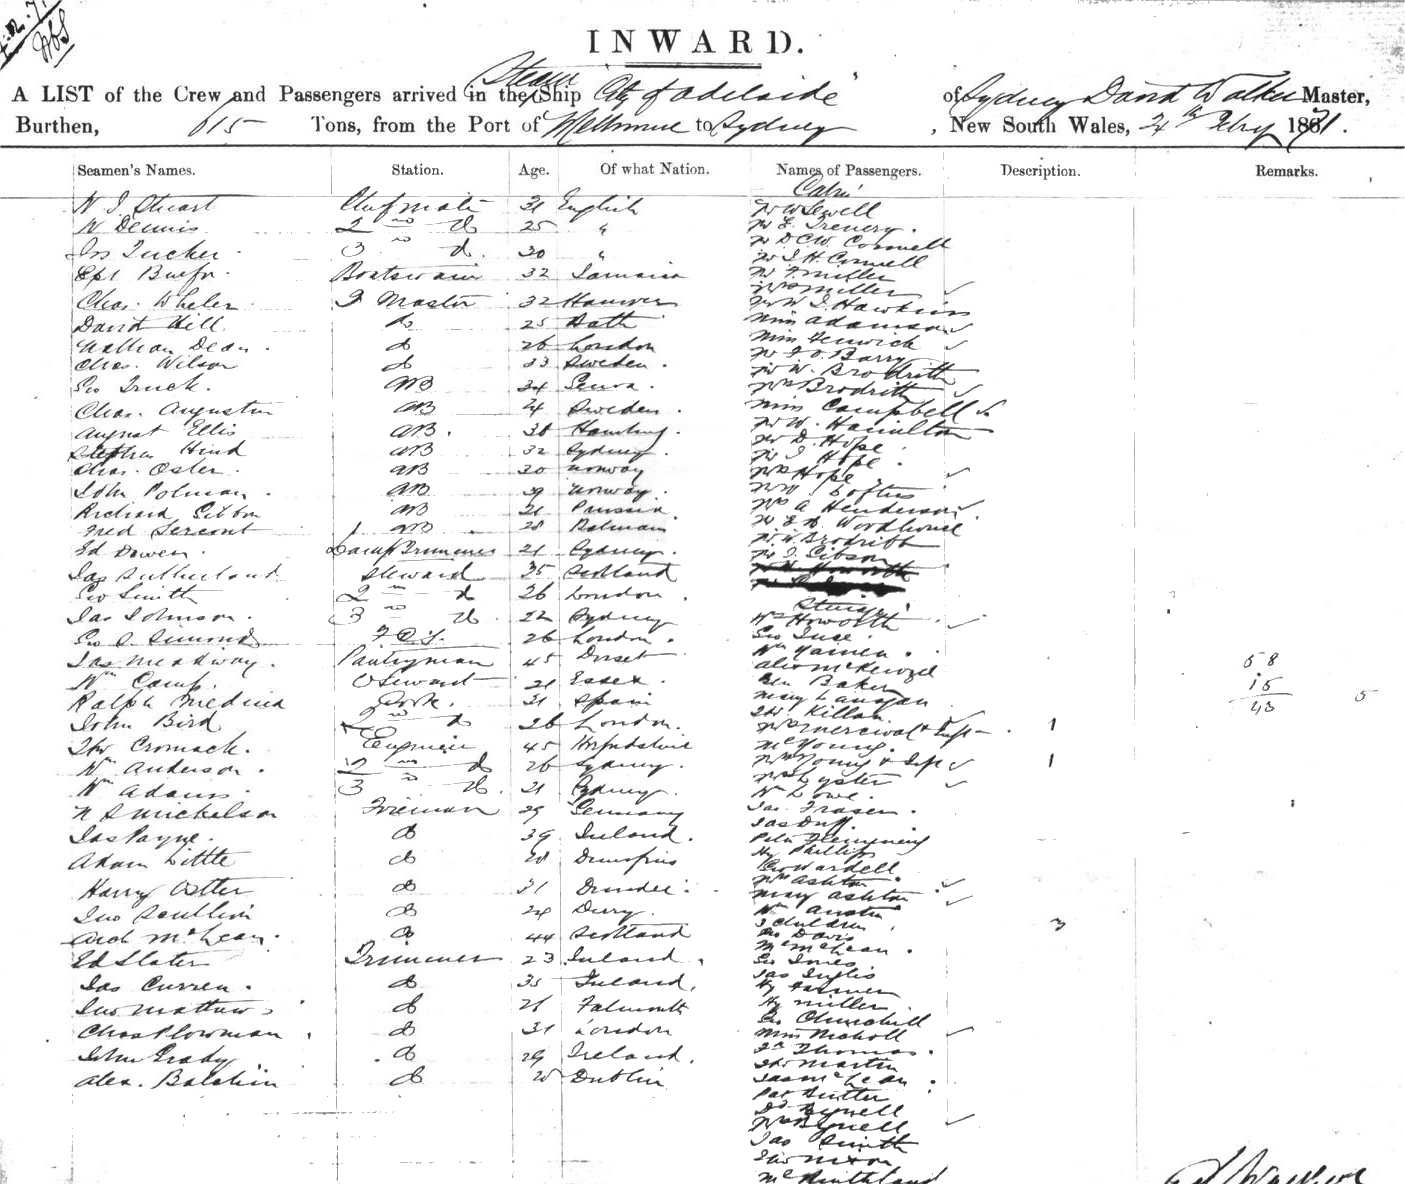 INWARD.
Steam
A LIST of the Crew and Passengers arrived in the Ship City of Adelaide of Sydney David Walker Master,
Burthen, 615 Tons, from the Port of Melbourne to Sydney, New South Wales, 24th Febry 1871.
Seamen's Names. Station. Age. Of what Nation. Names of Passengers. Description. Remarks.
Cabin
W J Stuart Chief mate 31 English Mr W Sewell
W Dennis 2nd do 25 " Mr E. Trenery.
Jos Tucker 3rd do. 30 " Mr D C W. Connell
Mr J. H. Connell
Boatswain 32 Jamaica Mr F. Miller
Mrs Miller
Chas. Wheler Q Master 32 Hanover Mr W J. Hawkins
David Hill do 25 Bath Miss Adamson
Nathan Dean. do 26 London Miss Fenwick
Chas. Wilson do 33 Sweden. Mr J. O. Barry
Mr W. Brodrith
Geo Truck. AB 34 Genoa. Mrs Brodrith
Chas. Augustin AB 24 Sweden. Miss Campbell
August Ellis AB. 38 Hamburg. Mr W. Hamilton
Stephen Hind AB 32 Sydney. Mr D. Hope
Chas. Oster. AB 30 Norway Mr J Hope.
Mrs Hope
John Polman. AB 39 Norway. Loftus
Richard Gibbon AB 21 Prussia. Mrs A Henderson
Fred Sercont AB 28 Balmain Mr E B Woodhouse
Ed Bowen. Lamp Trimmer 21 Sydney. Mr W. Brodribb
Mr J. Gibson
Jas Sutherland Steward 35 Scotland
Geo Smith 2nd do 26 London.
Steerage
Jas Johnson. 3rd do. 22 Sydney Mrs Howorth
Geo S. Simonds 26 London.
Jas Meadway. Pantryman 45 Dorset
Alex McKenzie 58
Wm Camp. Steward 21 Essex. Ben Baker 15
Ralph Medina Cook. 31 Spain Mary Lanagan 43 5
John Bird 2nd do 26 London. Thos Killan
1
Thos Cromack. Engineer 45 Herefordshire Mr Young.
Wm Anderson. 2nd do 26 Sydney. Mrs Young & Inft 1
Mrs Lyster
Wm Adams. 3rd do. 21 Sydney. Wm Lowe.
N S Mickelson Fireman 29 Germany Jas. Fraser.
Jas Duff.
Jas Payne. do 39 Ireland. Peter Flemming
Hy Phillips
Adam Little do 28 Dumfries Geo Wardell
Mrs Ashton.
Harry Otter do 31 Dundee. Mary Ashton
Wm Austin
Jno Scullion do 24 Derry. 3 Children 3
Davis
Arch McLean. do 44 Scotland Mr McLean.
Ed Slater Trimmer 23 Ireland. Geo Innes
Jas Inglis
Jas Curren. do 35 Ireland. Hy Farmer
Hy Miller
Jno Mathews do 26 Falmouth Geo Churchill
Chas Plowman do 31 London Miss Nicholl
Thomas.
John Grady do 29 Ireland. Thos Martin
Jas McLean.
Alex. Balchin do 20 Dublin Pat Butler
Jas Smith
Jno Nixon